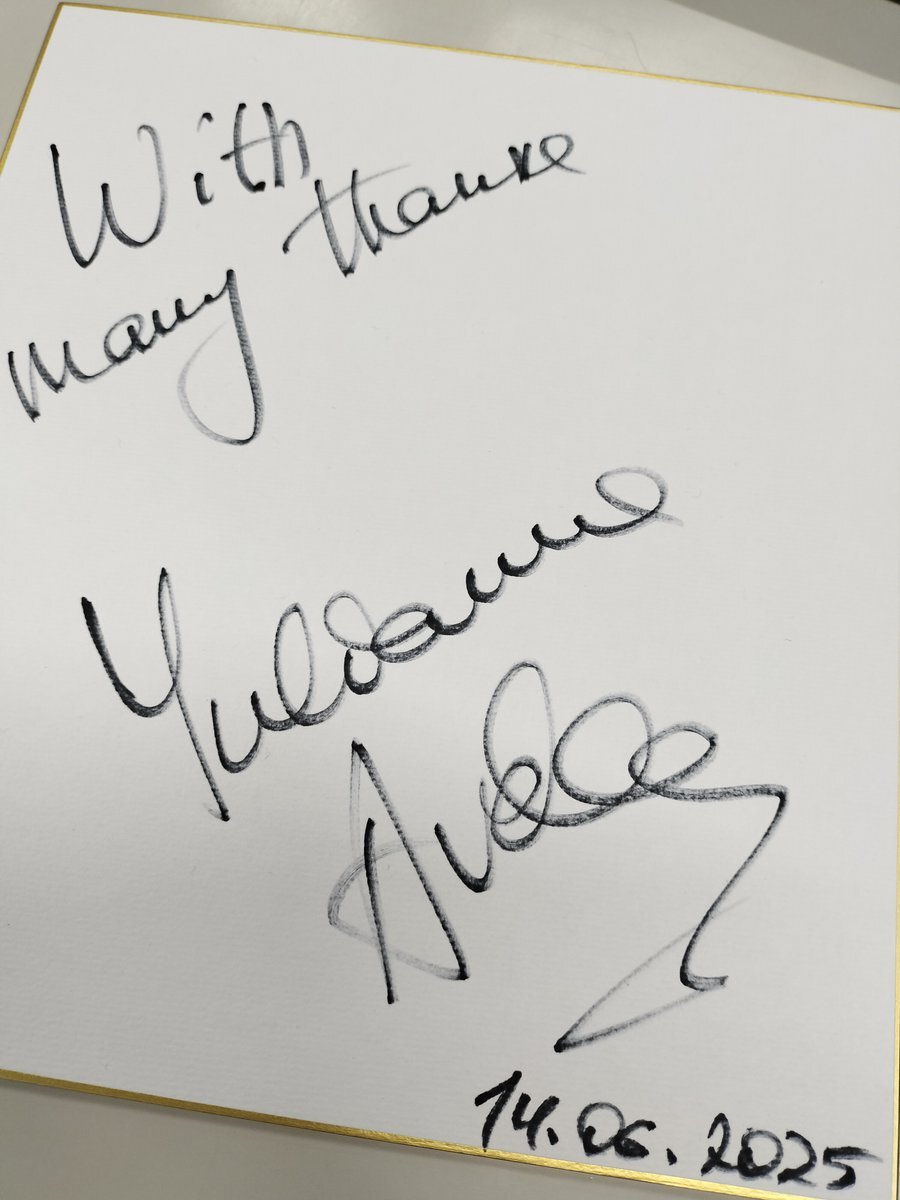 With
many thanks
Yulianna
Avdeeva
14.06.2025